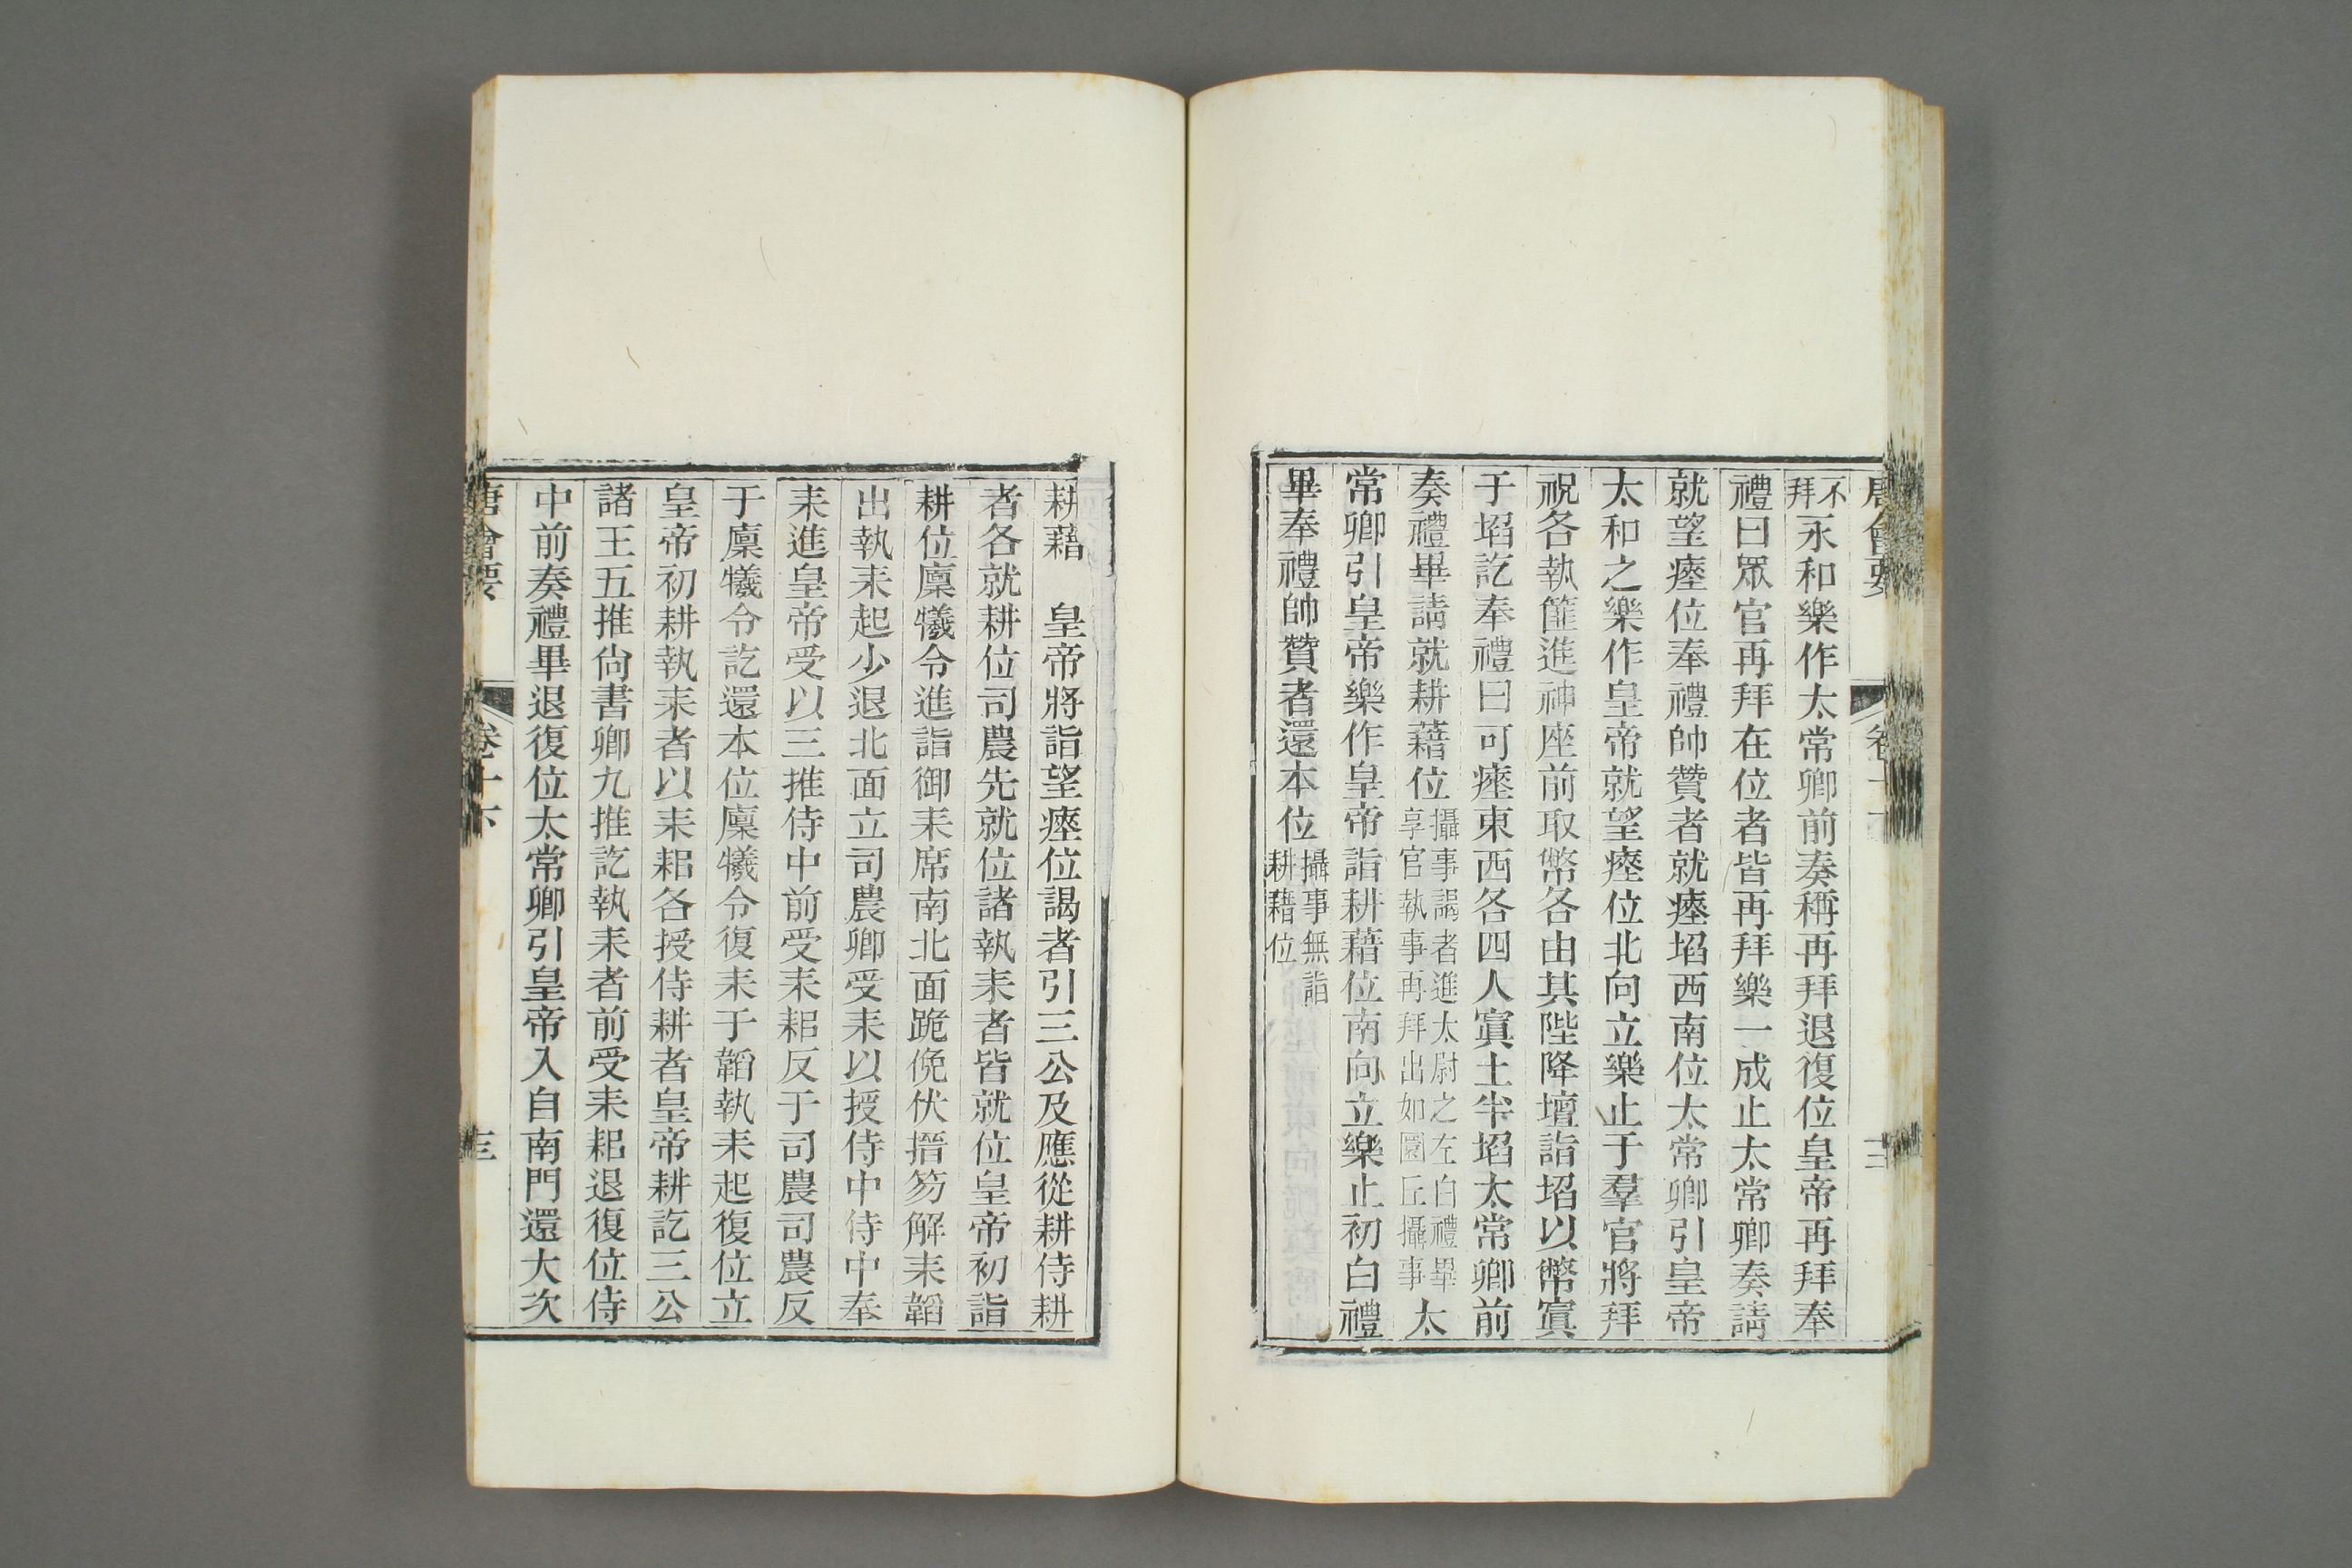 唐會要 卷十下
不拜永和樂作太常卿前奏稱再拜退復位皇帝再拜奉
禮曰眾官再拜在位者皆再拜樂一成止太常卿奏請
就望瘞位奉禮帥贊者就瘞埳西南位太常卿引皇帝
太和之樂作皇帝就望瘞位北向立樂止于羣官將拜
祝各執篚進神座前取幣各由其陛降壇詣埳以幣寘
于埳訖奉禮曰可瘞東西各四人寘土半埳太常卿前
奏禮畢請就耕藉位攝事謁者進太尉之左白禮畢享官執事再拜出如圜丘攝事太
常卿引皇帝樂作皇帝詣耕藉位南向立樂止初白禮
畢奉禮帥贊者還本位攝事無詣耕藉位
耕藉　皇帝將詣望瘞位謁者引三公及應從耕侍耕
者各就耕位司農先就位諸執耒者皆就位皇帝初詣
耕位廩犧令進詣御耒席南北面跪俛伏搢笏解耒韜
出執耒起少退北面立司農卿受耒以授侍中侍中奉
耒進皇帝受以三推侍中前受耒耜反于司農司農反
于廩犧令訖還本位廩犧令復耒于韜執耒起復位立
皇帝初耕執耒者以耒耜各授侍耕者皇帝耕訖三公
諸王五推尚書卿九推訖執耒者前受耒耜退復位侍
中前奏禮畢退復位太常卿引皇帝入自南門還大次
唐會要 卷十下